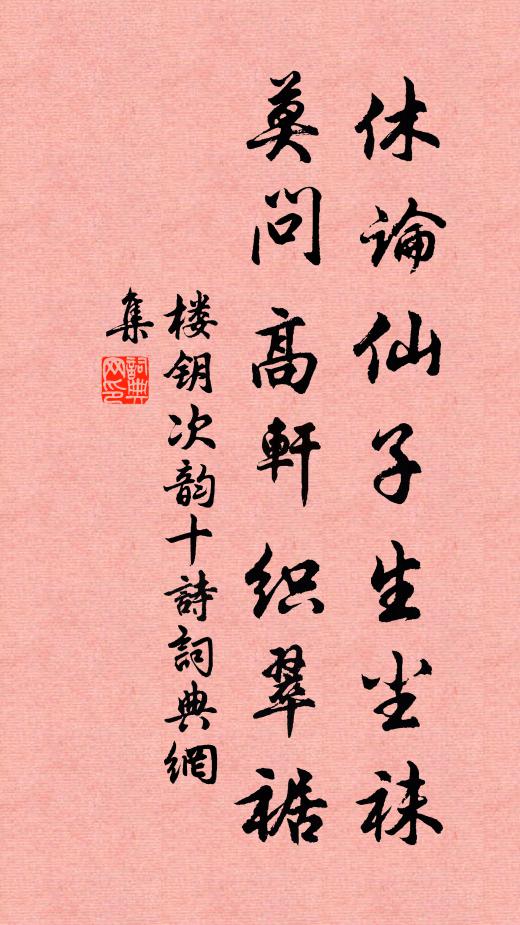 休论仙子生尘袜
莫问高轩织翠裾
楼钥次韵十詩詞典網
集
詞典网印